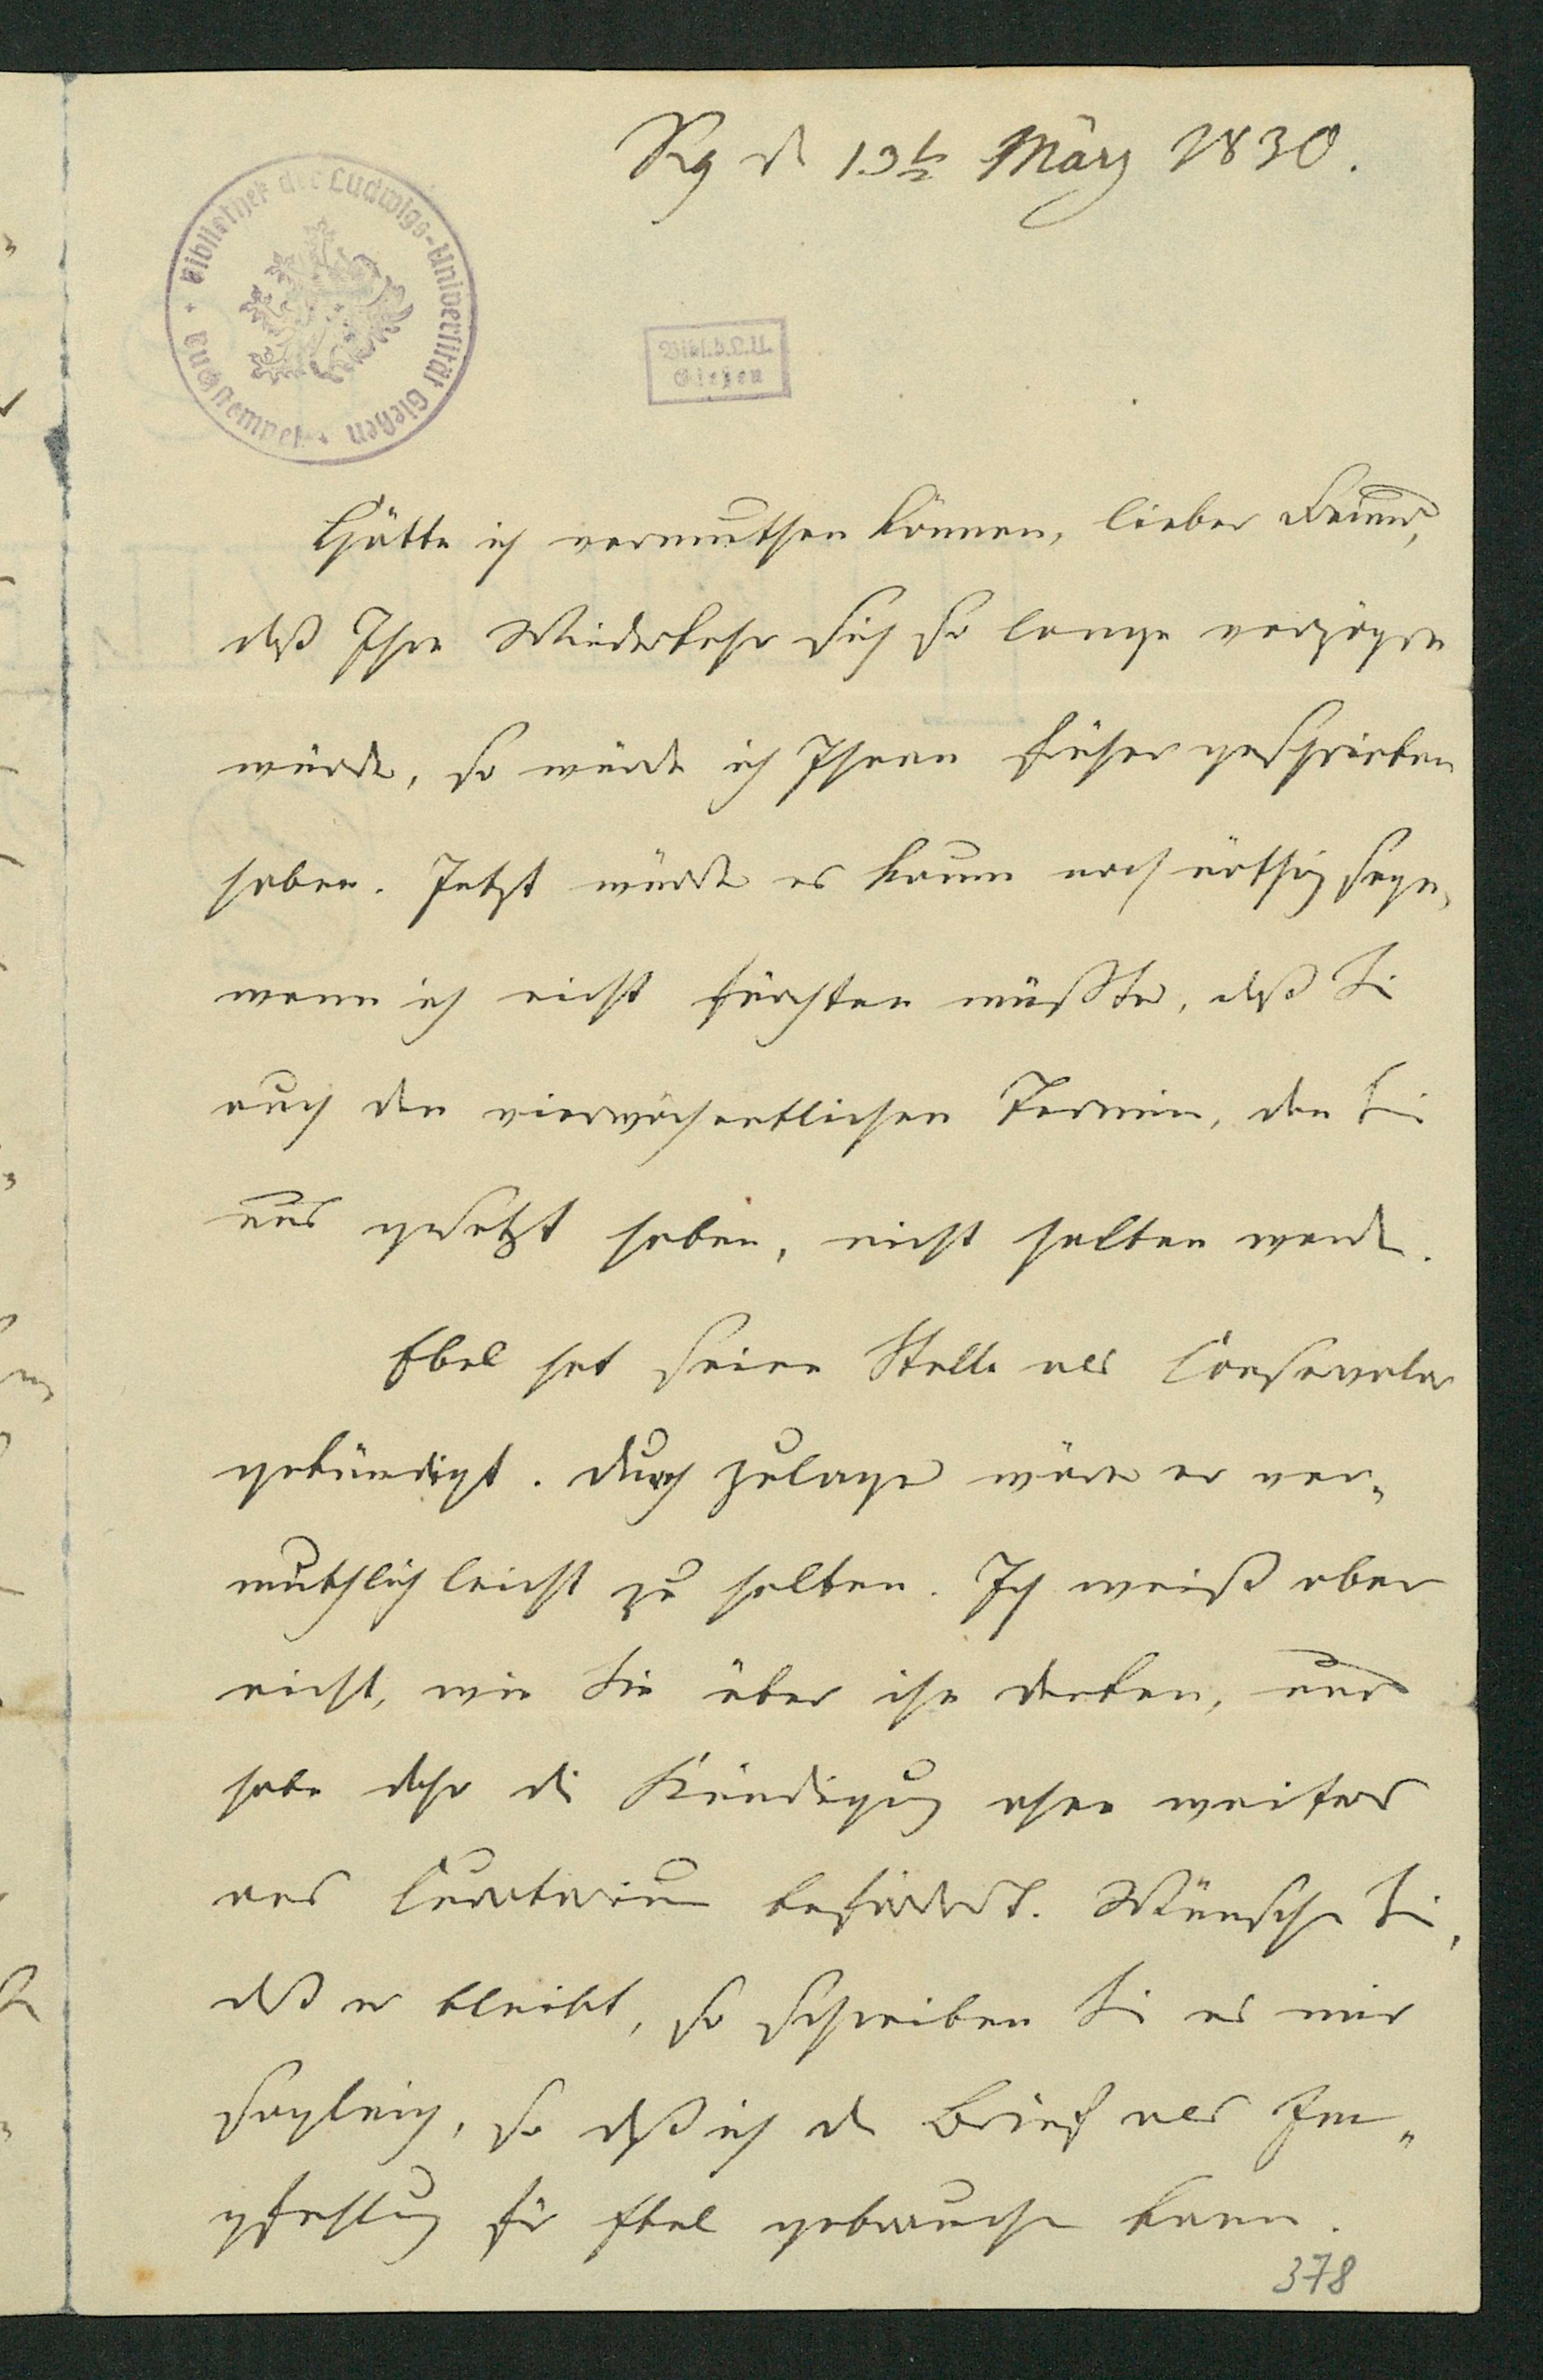 Kg d 13t März 1830.
Bibliothek der Ludwigs-Universität Gießen
Tuchstempel
Bibl. d. L. U.
Gießen
Hätte ich vermuthen können, lieber Freund,
daß Ihre Wiederkehr sich so lange verzögern
würde, so würde ich Ihnen früher geschrieben
haben. Jetzt würde es kaum noch nöthig seyn,
wenn ich nicht fürchten müßte, daß Sie
auch den vierwöchentlichen Termin, den Sie
uns gesetzt haben, nicht halten werden.
Ebel hat seine Stelle als Conservator
gekündigt. Durch Zulage wäre er ver-
muthlich leicht zu halten. Ich weiß aber
nicht, wie Sie über ihn denken, und
habe daher die Kündigung ohne weiteres
ans Curatorium befördert. Wünschen Sie,
daß er bleibt, so schreiben Sie es mir
sogleich, so daß ich den Brief als Em-
pfehlung für Ebel gebrauchen kann.
378